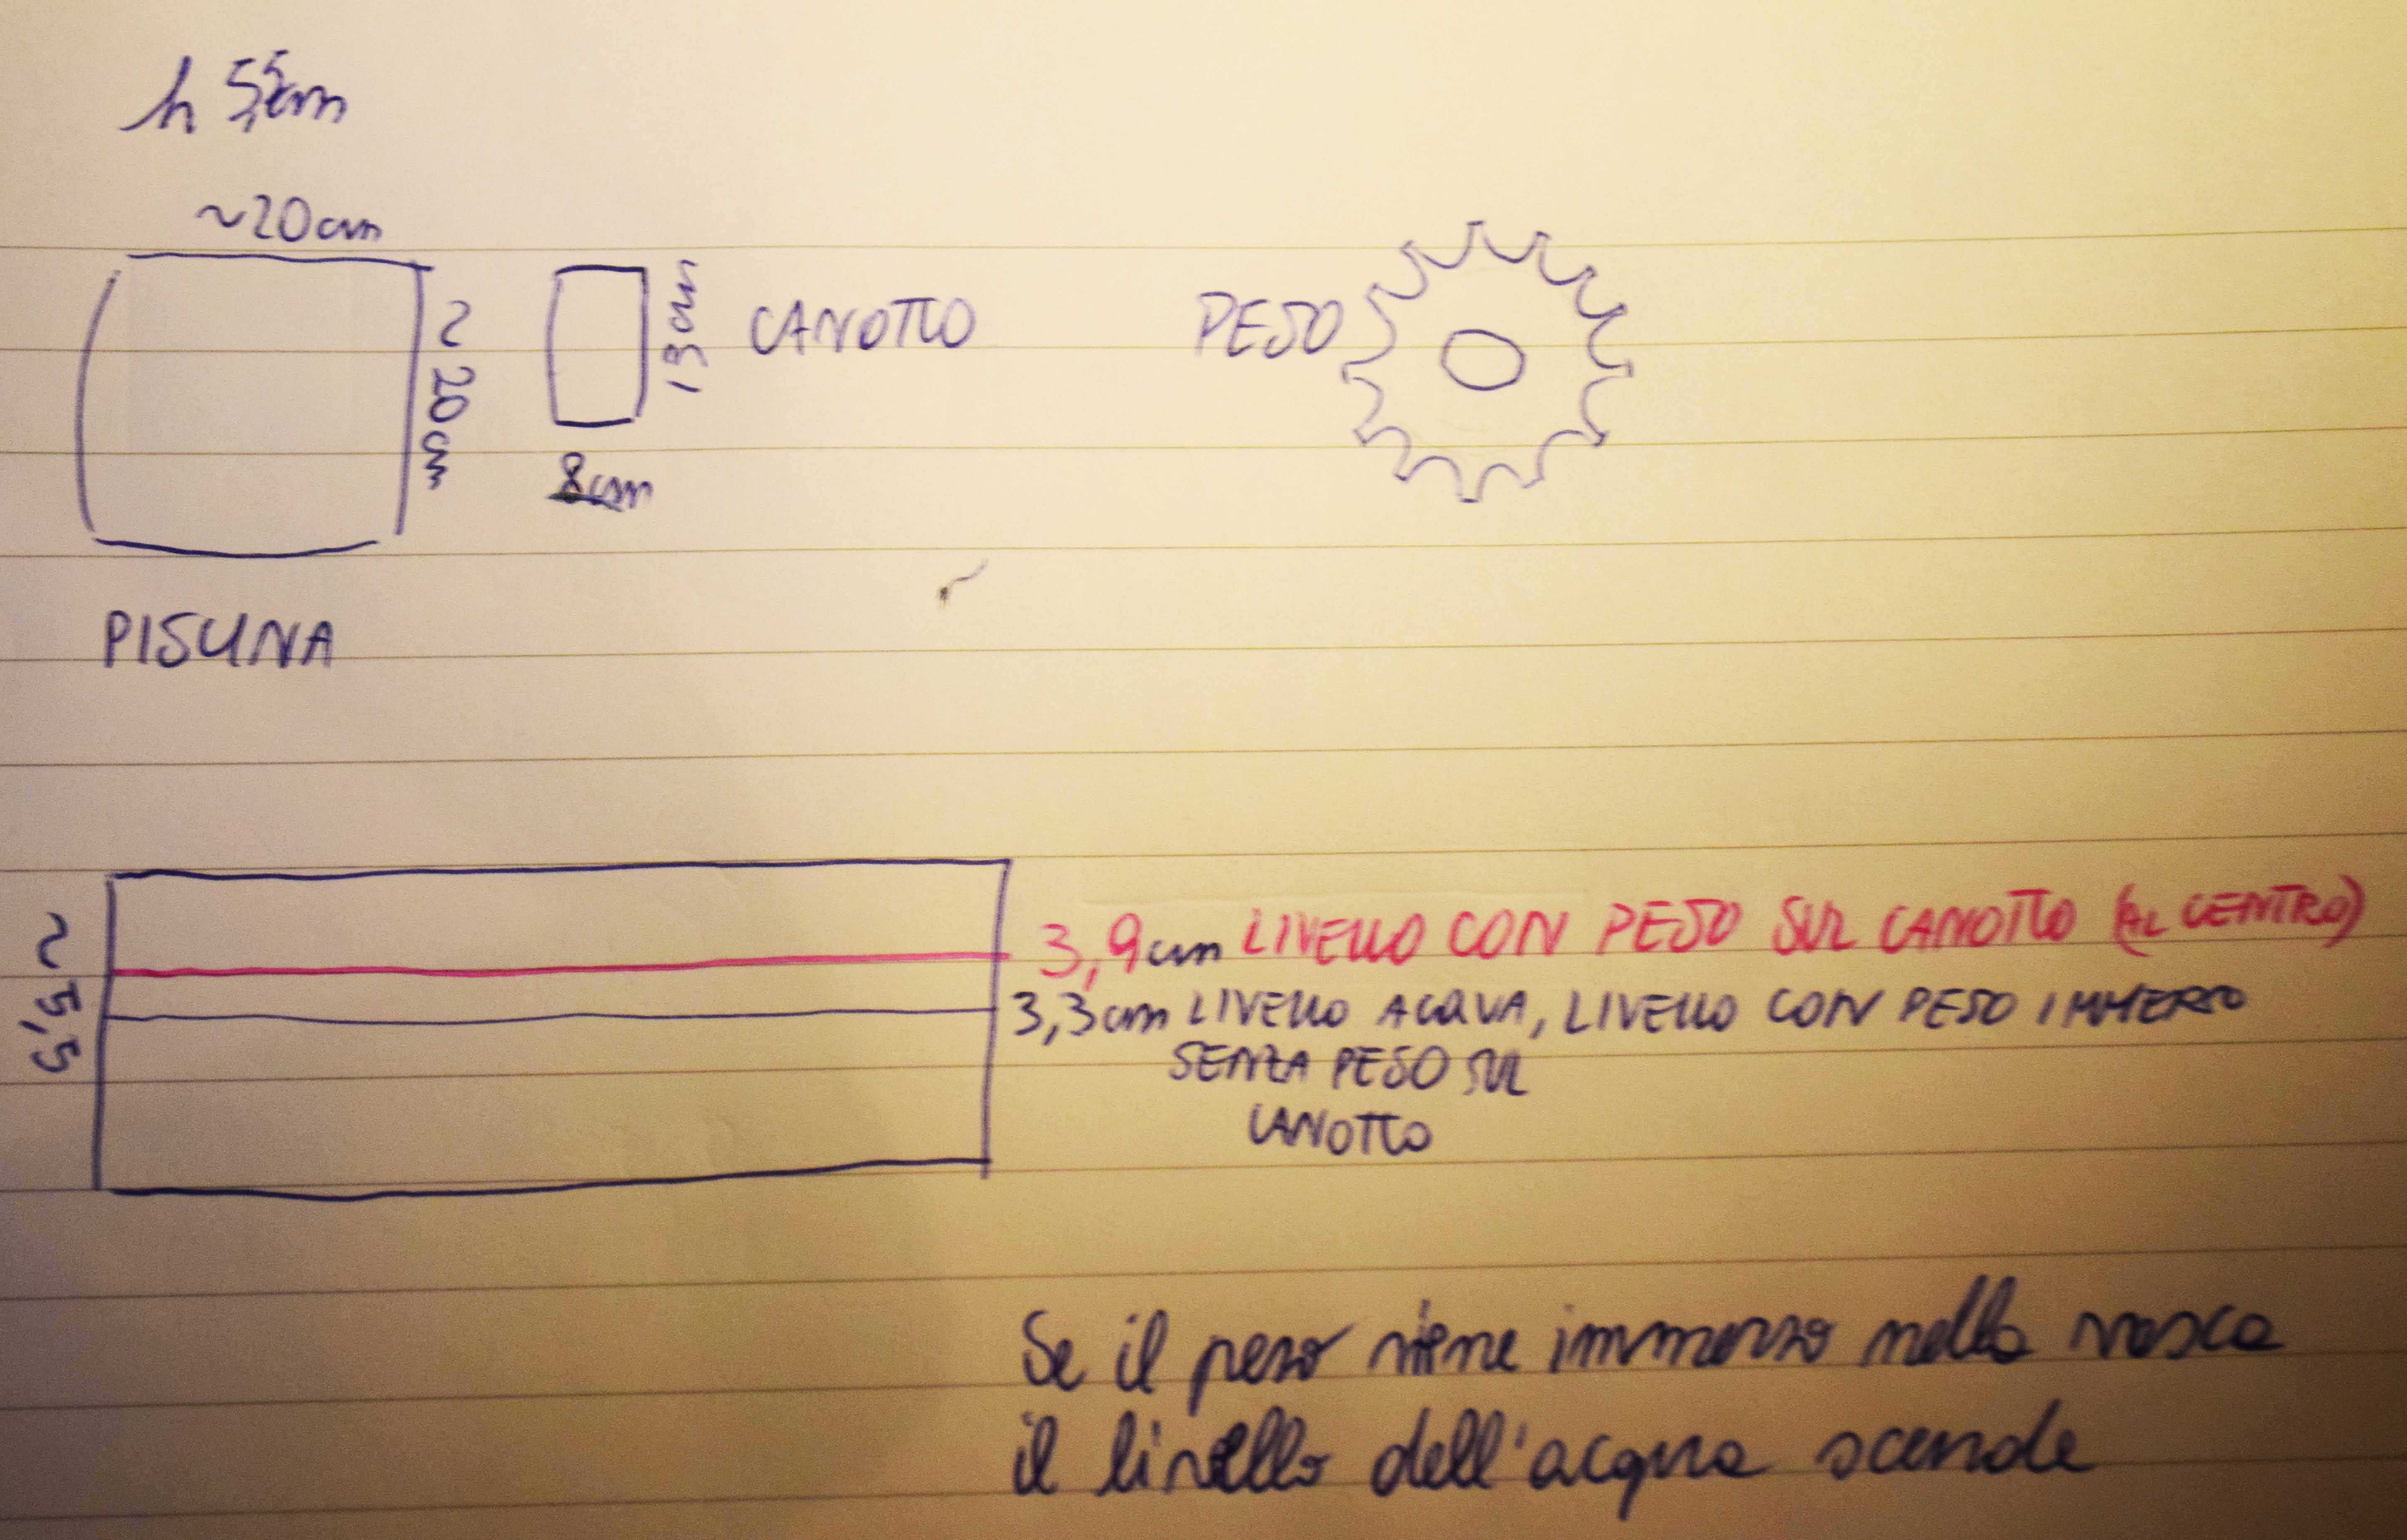 h 5,5cm
~20cm
~20cm
13cm
CANOTTO
PESO
8cm
PISCINA
~5,5
3,9cm LIVELLO CON PESO SUL CANOTTO (AL CENTRO)
3,3cm LIVELLO ACQUA, LIVELLO CON PESO IMMERSO
SENZA PESO SUL
CANOTTO
Se il peso viene immerso nella vasca
il livello dell'acqua scende